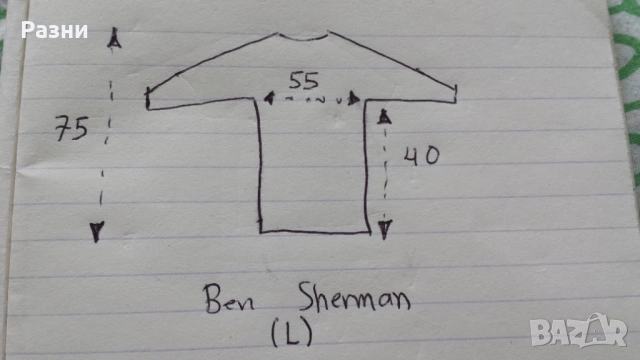 Разни
55
75
40
Ben Sherman
(L)
BAZAR